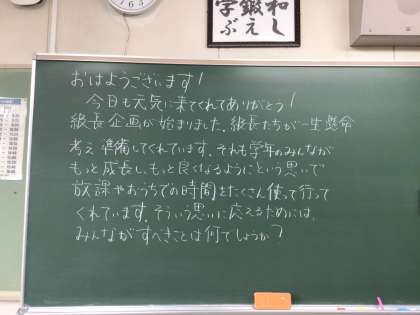 和し
鍛え
学ぶ
おはようございます!
今日も元気に来てくれてありがとう!
級長企画が始まりました。級長たちが一生懸命
考え準備してくれています。それも学年のみんなが
もっと成長し、もっと良くなるようにという思いで
放課やおうちでの時間をたくさん使って行って
くれています。そういう思いに応えるためには、
みんながすべきことは何でしょうか?